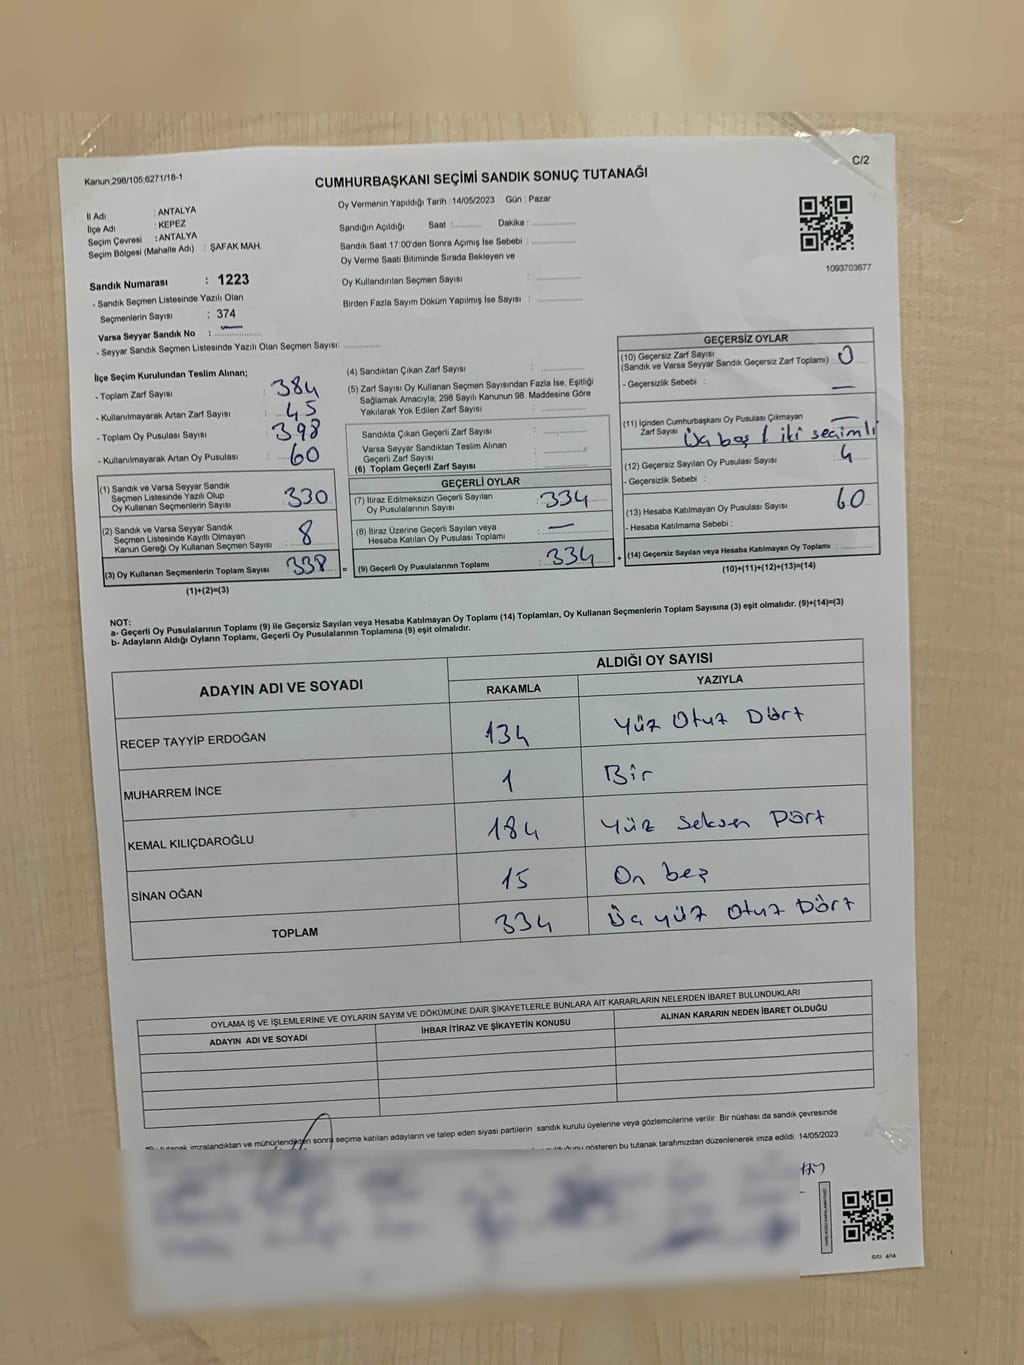 Kanun,298/105,6271/18-1
C/2
CUMHURBAŞKANI SEÇİMİ SANDIK SONUÇ TUTANAĞI
Oy Vermenin Yapıldığı Tarih : 14/05/2023 Gün : Pazar
İl Adı : ANTALYA
İlçe Adı : KEPEZ
Seçim Çevresi : ANTALYA
Seçim Bölgesi (Mahalle Adı) : ŞAFAK MAH.
Sandığın Açıldığı Saat :.......... Dakika : ..............
Sandık Saat 17:00'den Sonra Açımış İse Sebebi : ..............
Oy Verme Saati Bitiminde Sırada Bekleyen ve
Oy Kullandırılan Seçmen Sayısı : ..............
Birden Fazla Sayım Döküm Yapılmış İse Sayısı : ..............
1093703677
Sandık Numarası : 1223
- Sandık Seçmen Listesinde Yazılı Olan
Seçmenlerin Sayısı : 374
Varsa Seyyar Sandık No : —
- Seyyar Sandık Seçmen Listesinde Yazılı Olan Seçmen Sayısı: ............
İlçe Seçim Kurulundan Teslim Alınan;
- Toplam Zarf Sayısı : 384
- Kullanılmayarak Artan Zarf Sayısı : 45
- Toplam Oy Pusulası Sayısı : 398
- Kullanılmayarak Artan Oy Pusulası : 60
(1) Sandık ve Varsa Seyyar Sandık
Seçmen Listesinde Yazılı Olup
Oy Kullanan Seçmenlerin Sayısı : 330
(2) Sandık ve Varsa Seyyar Sandık
Seçmen Listesinde Kayıtlı Olmayan
Kanun Gereği Oy Kullanan Seçmen Sayısı : 8
(3) Oy Kullanan Seçmenlerin Toplam Sayısı : 338
(1)+(2)=(3)
(4) Sandıktan Çıkan Zarf Sayısı : ............
(5) Zarf Sayısı Oy Kullanan Seçmen Sayısından Fazla İse, Eşitliği
Sağlamak Amacıyla; 298 Sayılı Kanunun 98. Maddesine Göre
Yakılarak Yok Edilen Zarf Sayısı : ............
Sandıkta Çıkan Geçerli Zarf Sayısı : ............
Varsa Seyyar Sandıktan Teslim Alınan
Geçerli Zarf Sayısı : ............
(6) Toplam Geçerli Zarf Sayısı : ............
GEÇERLİ OYLAR
(7) İtiraz Edilmeksizin Geçerli Sayılan
Oy Pusulalarının Sayısı : 334
(8) İtiraz Üzerine Geçerli Sayılan veya
Hesaba Katılan Oy Pusulası Toplamı : —
= (9) Geçerli Oy Pusulalarının Toplamı : 334 +
GEÇERSİZ OYLAR
(10) Geçersiz Zarf Sayısı
(Sandık ve Varsa Seyyar Sandık Geçersiz Zarf Toplamı) : 0
- Geçersizlik Sebebi : —
(11) İçinden Cumhurbaşkanı Oy Pusulası Çıkmayan
Zarf Sayısı : Üç boş 1 iki seçimli
(12) Geçersiz Sayılan Oy Pusulası Sayısı 4
- Geçersizlik Sebebi :
(13) Hesaba Katılmayan Oy Pusulası Sayısı 60
- Hesaba Katılmama Sebebi :
(14) Geçersiz Sayılan veya Hesaba Katılmayan Oy Toplamı : ............
(10)+(11)+(12)+(13)=(14)
NOT:
a- Geçerli Oy Pusulalarının Toplamı (9) ile Geçersiz Sayılan veya Hesaba Katılmayan Oy Toplamı (14) Toplamları, Oy Kullanan Seçmenlerin Toplam Sayısına (3) eşit olmalıdır. (9)+(14)=(3)
b- Adayların Aldığı Oyların Toplamı, Geçerli Oy Pusulalarının Toplamına (9) eşit olmalıdır.
ADAYIN ADI VE SOYADI ALDIĞI OY SAYISI
RAKAMLA YAZIYLA
RECEP TAYYİP ERDOĞAN 134 Yüz Otuz Dört
MUHARREM İNCE 1 Bir
KEMAL KILIÇDAROĞLU 184 Yüz Seksen Dört
SİNAN OĞAN 15 On beş
TOPLAM 334 Üç yüz Otuz Dört
OYLAMA İŞ VE İŞLEMLERİNE VE OYLARIN SAYIM VE DÖKÜMÜNE DAİR ŞİKAYETLERLE BUNLARA AİT KARARLARIN NELERDEN İBARET BULUNDUKLARI
ADAYIN ADI VE SOYADI İHBAR İTİRAZ VE ŞİKAYETİN KONUSU ALINAN KARARIN NEDEN İBARET OLDUĞU
tutanak imzalandıktan ve mühürlendikten sonra seçime katılan adayların ve talep eden siyasi partilerin sandık kurulu üyelerine veya gözlemcilerine verilir. Bir nüshası da sandık çevresinde
gösteren bu tutanak tarafımızdan düzenlenerek imza edildi. 14/05/2023